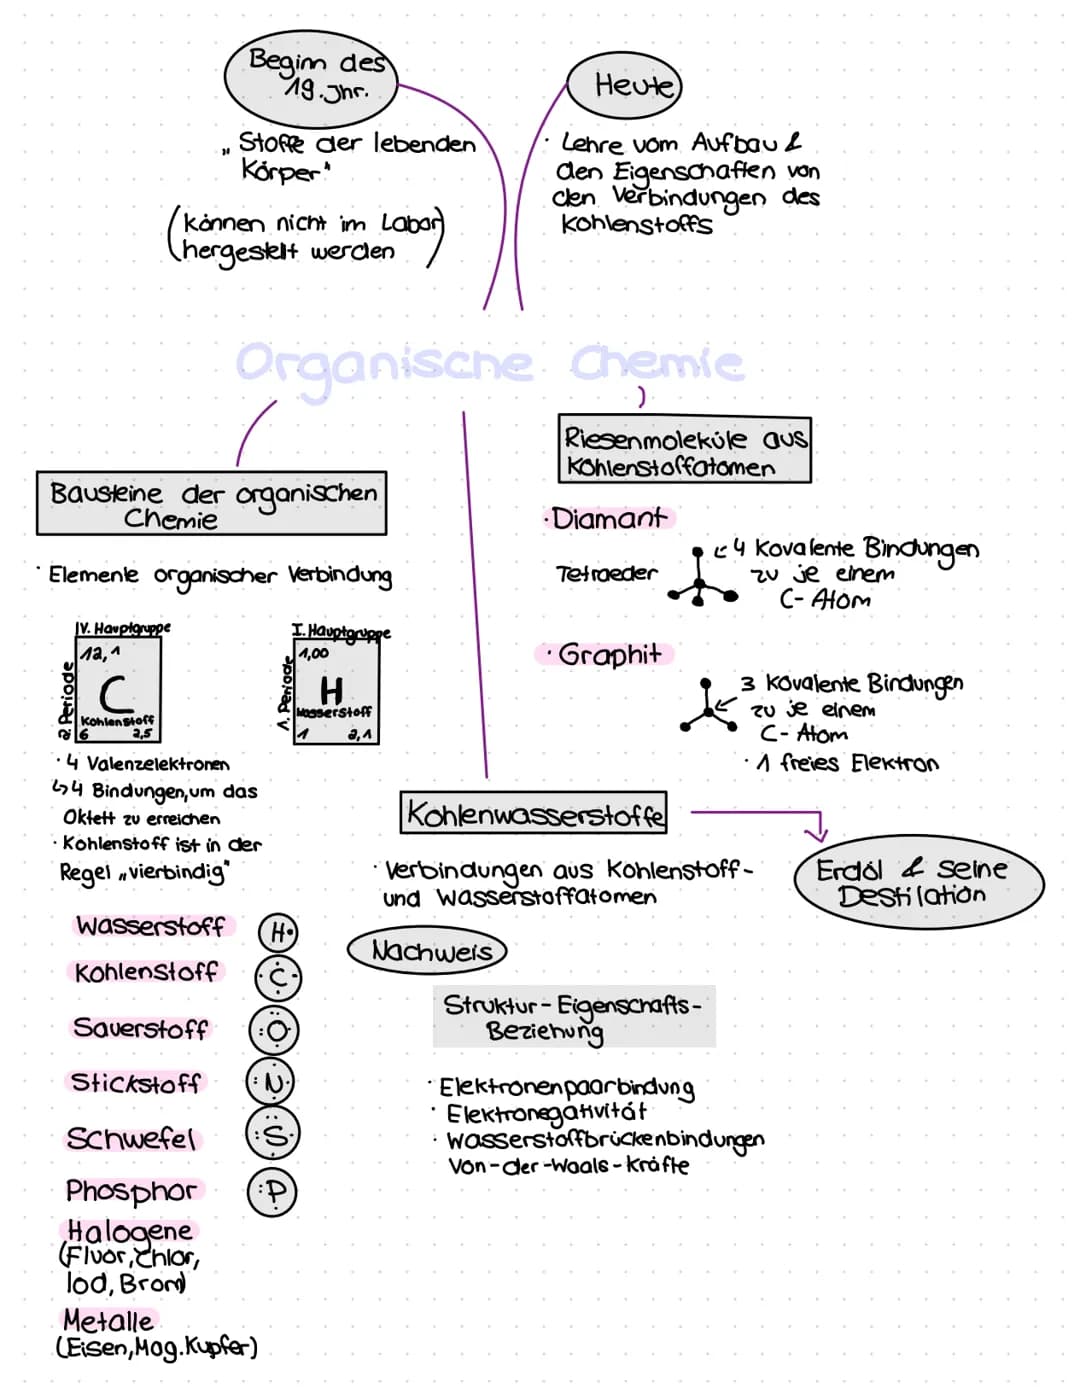 Beginn des
19. Jhr.
„Stoffe der lebenden
Körper"
(können nicht im Labor
hergestellt werden)
Heute
· Lehre vom Aufbau &
den Eigenschaften von
den Verbindungen des
Kohlenstoffs
Organische Chemie
Bausteine der organischen
Chemie
· Elemente organischer Verbindung
IV. Hauptgruppe
2. Periode
12,1
C
Kohlenstoff
6 2,5
I. Hauptgruppe
1. Periode
1,00
H
Wasserstoff
1 2,1
· 4 Valenzelektronen
↳ 4 Bindungen, um das
Oktett zu erreichen
· Kohlenstoff ist in der
Regel „vierbindig"
Wasserstoff H·
Kohlenstoff ·C·
Sauerstoff :O·
Stickstoff :N·
Schwefel :S·
Phosphor :P
Halogene
(Fluor, Chlor,
Iod, Brom)
Metalle
(Eisen, Mag. Kupfer)
Riesenmoleküle aus
Kohlenstoffatomen
· Diamant
Tetraeder
4 Kovalente Bindungen
zu je einem
C-Atom
· Graphit
3 Kovalente Bindungen
zu je einem
C-Atom
· 1 freies Elektron
Kohlenwasserstoffe
· Verbindungen aus Kohlenstoff-
und Wasserstoffatomen
Erdöl & seine
Destilation
Nachweis
Struktur-Eigenschafts-
Beziehung
· Elektronenpaarbindung
· Elektronegativität
· Wasserstoffbrückenbindungen
Von-der-Waals-Kräfte